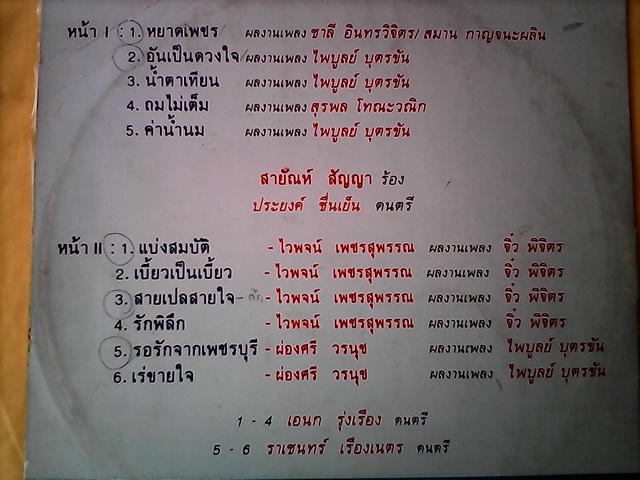 หน้า I : 1. หยาดเพชร ผลงานเพลง ชาลี อินทรวิจิตร/ สมาน กาญจนะผลิน
2. อันเป็นดวงใจ ผลงานเพลง ไพบูลย์ บุตรขัน
3. น้ำตาเทียน ผลงานเพลง ไพบูลย์ บุตรขัน
4. ถมไม่เต็ม ผลงานเพลง สุรพล โทณะวณิก
5. ค่าน้ำนม ผลงานเพลง ไพบูลย์ บุตรขัน
สายัณห์ สัญญา ร้อง
ประยงค์ ชื่นเย็น ดนตรี
หน้า II : 1. แบ่งสมบัติ - ไวพจน์ เพชรสุพรรณ ผลงานเพลง จิ๋ว พิจิตร
2. เบี้ยวเป็นเบี้ยว - ไวพจน์ เพชรสุพรรณ ผลงานเพลง จิ๋ว พิจิตร
3. สายเปลสายใจ - ไวพจน์ เพชรสุพรรณ ผลงานเพลง จิ๋ว พิจิตร
4. รักพิลึก - ไวพจน์ เพชรสุพรรณ ผลงานเพลง จิ๋ว พิจิตร
5. รอรักจากเพชรบุรี - ผ่องศรี วรนุช ผลงานเพลง ไพบูลย์ บุตรขัน
6. เร่ขายใจ - ผ่องศรี วรนุช ผลงานเพลง ไพบูลย์ บุตรขัน
1 - 4 เอนก รุ่งเรือง ดนตรี
5 - 6 ราเชนทร์ เรืองเนตร ดนตรี